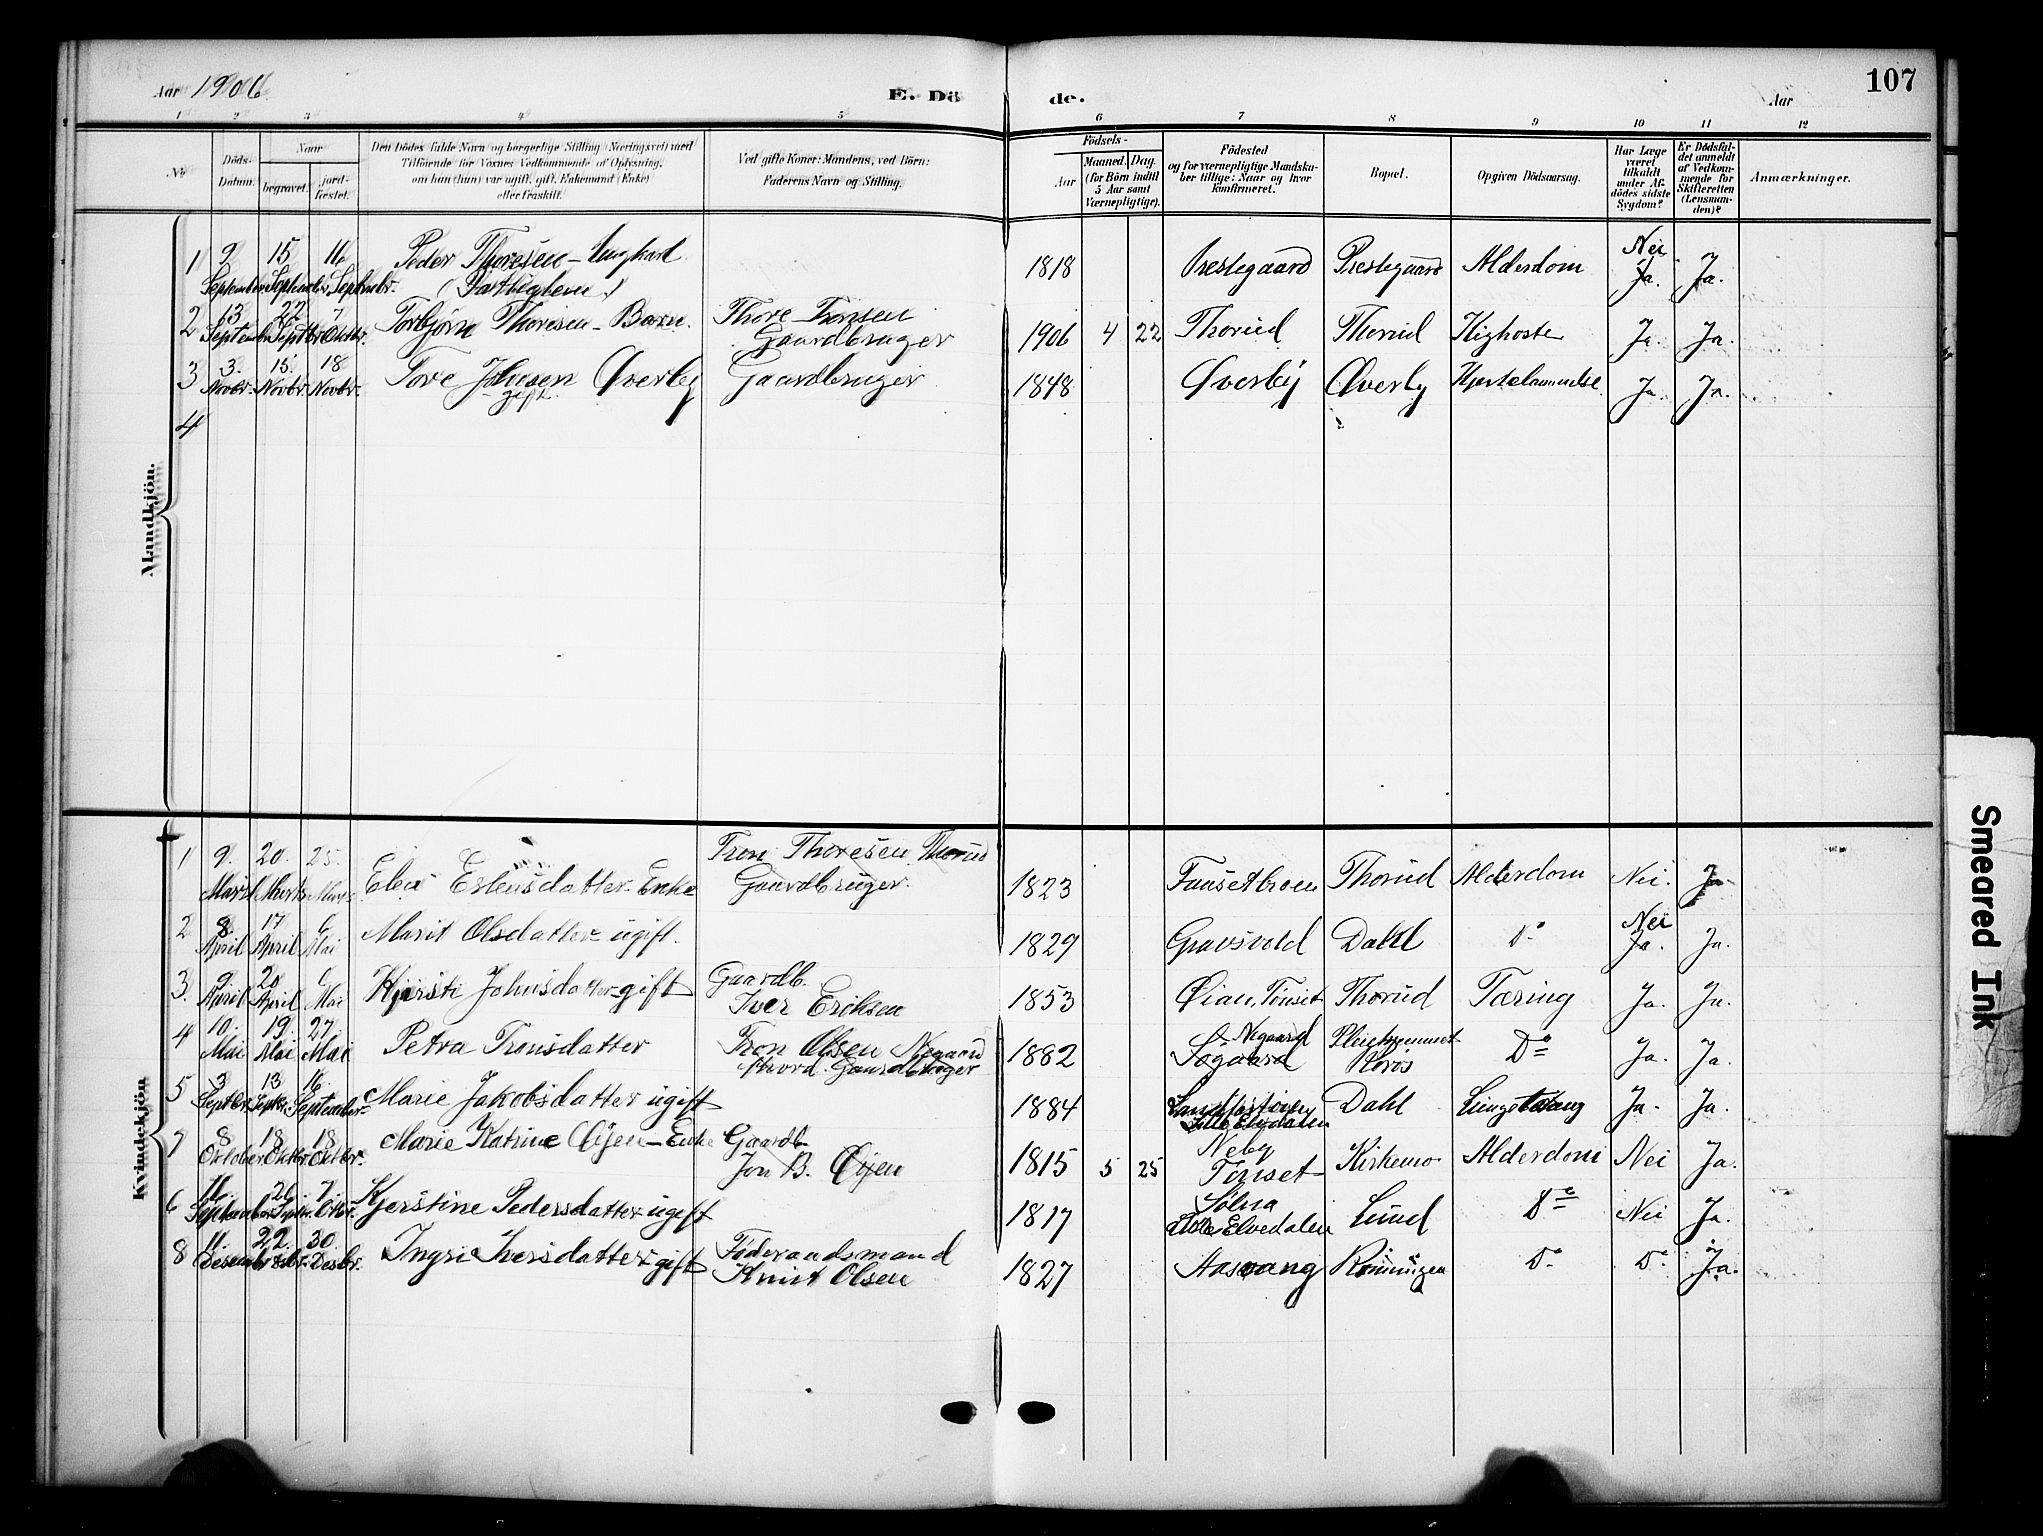 Aar 1906.
E. Dö de.
Aar
107
1 2 3 4 5 6 7 8 9 10 11 12
No
Döds-Datum.
Naar
begravet.
jord-fæstet.
Den Dödes fulde Navn og borgerlige Stilling (Næringsvei) med
Tilföiende for Voxnes Vedkommende af Oplysning,
om han (hun) var ugift, gift, Enkemand (Enke)
eller fraskilt.
Ved gifte Koner: Mandens, ved Börn:
Faderens Navn og Stilling.
Födsels-
Aar
Maaned. Dag.
(for Börn indtil
5 Aar samt
Værnepligtige).
Födested
og for værnepligtige Mandska-
ber tillige: Naar og hvor
konfirmeret.
Bopæl.
Opgiven Dödsaarsag.
Har Læge
været
tilkaldt
under Af-
dödes sidste
Sygdom?
Er Dödsfal-
det anmeldt
af Vedkom-
mende for
Skifteretten
(Lensman-
den)?
Anmærkninger.
Mandkjön.
1 9 September 15 September 16 Septembr. Peder Thoresen - Ungkarl 1818 Prestegaard Prestegaard Alderdom Nei Ja. Ja.
2 13 September 22 Septbr 7 Oktbr. Torbjørn Thoresen - Barn. Thore Tronsen
Gaardbruger 1906 4 22 Thorud Thorud Kighoste Ja. Ja.
3 3. Novbr. 15. Novbr. 18 Novbr. Tore Johnsen Øverby
gift. Gaardbruger 1848 Øverby Øverby Hjertelammelse Ja. Ja.
4
Kvindekjön
1 9. Marts 20. Marts 25. Marts Elen Estensdatter - Enke Tron Thoresen Thorud
Gaardbruger. 1823 Fausetbroen Thorud Alderdom Nei. Ja
2 8. April 17 April 6 Mai Marit Olsdatter - ugift. 1829 Dahl Do Nei Ja. Ja.
3. 9 April 20 April 6 Mai Kjersti Johnsdatter - gift Gaardb.
Iver Eriksen 1853 Øian, Tönset Thorud Tæring Ja. Ja.
4 10. Mai 19. Mai 27. Mai Petra Tronsdatter Tron Olsen Negaard
Gaardbruger 1882 Negaard
Søgaard Pleiehjemmet
Röros Do Ja. Ja.
5 3 Septbr. 13 Septbr. 16. September Marie Jakobsdatter ugift 1884 Lille Elvdalen Dahl Ja. Ja.
7 8 Oktober 18 Oktbr 18 Oktbr. Marie Katrine Øyen - Enke Gaardb.
Jon B. Øyen 1815 5 25 Neby
Tönset Kirkemo Alderdom Nei Ja.
6 16. September 26 7. Oktbr. Kjerstine Pedersdatter ugift 1817 Sølna
Lille Elvedalen Lund Do Nei Ja.
8 11. Desembr 22. Desbr. 30. Desbr. Ingri Iversdatter gift Föderaadsmand
Knut Olsen 1827 Aasvang Rönningen Do Do Ja.
Smeared Ink